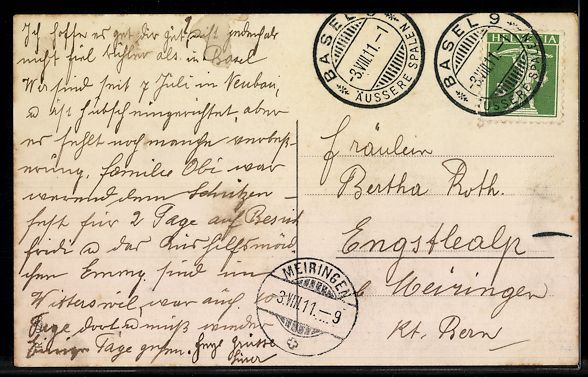 Ich hoffe es geht dir gut, ist jedenfalls
nicht viel kühler als in Basel
Wir sind seit 7 Juli im Neubau,
u ist hübsch eingerichtet, aber
es fehlt noch manche verbeß-
erung, Familie Obi war
während dem Schützen-
fest für 2 Tage auf Besuch
Frida u das Aushilfsmäd-
chen Emmy sind in
Witterswil, war auch
Tage dort u muß wieder
einige Tage gehen. Herzl Grüsse
BASEL 9
-3.VIII.11.-1
ÄUSSERE SPALEN
BASEL 9
-3.VIII.11.-
ÄUSSERE SPALEN
HELVETIA
Fräulein
Bertha Roth.
Engstlealp
b Meiringen
Kt. Bern
MEIRINGEN
3.VIII.11.-9